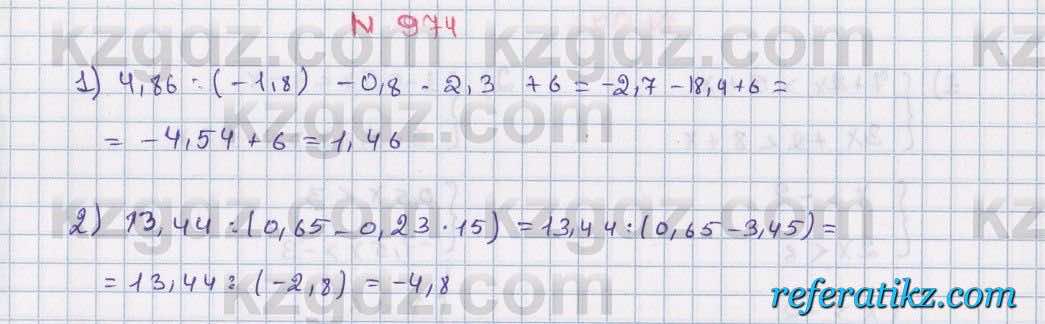 kzgdz.com kzgdz.com kzgdz.com
N 974
1) 4,86 : (-1,8) - 0,8 · 2,3 + 6 = -2,7 - 18,4 + 6 =
= -4,54 + 6 = 1,46
kzgdz.com
2) 13,44 : (0,65 - 0,23 · 15) = 13,44 : (0,65 - 3,45) =
kzgdz.com kzgdz.com
= 13,44 : (-2,8) = -4,8
kzgdz.com
referatikz.com